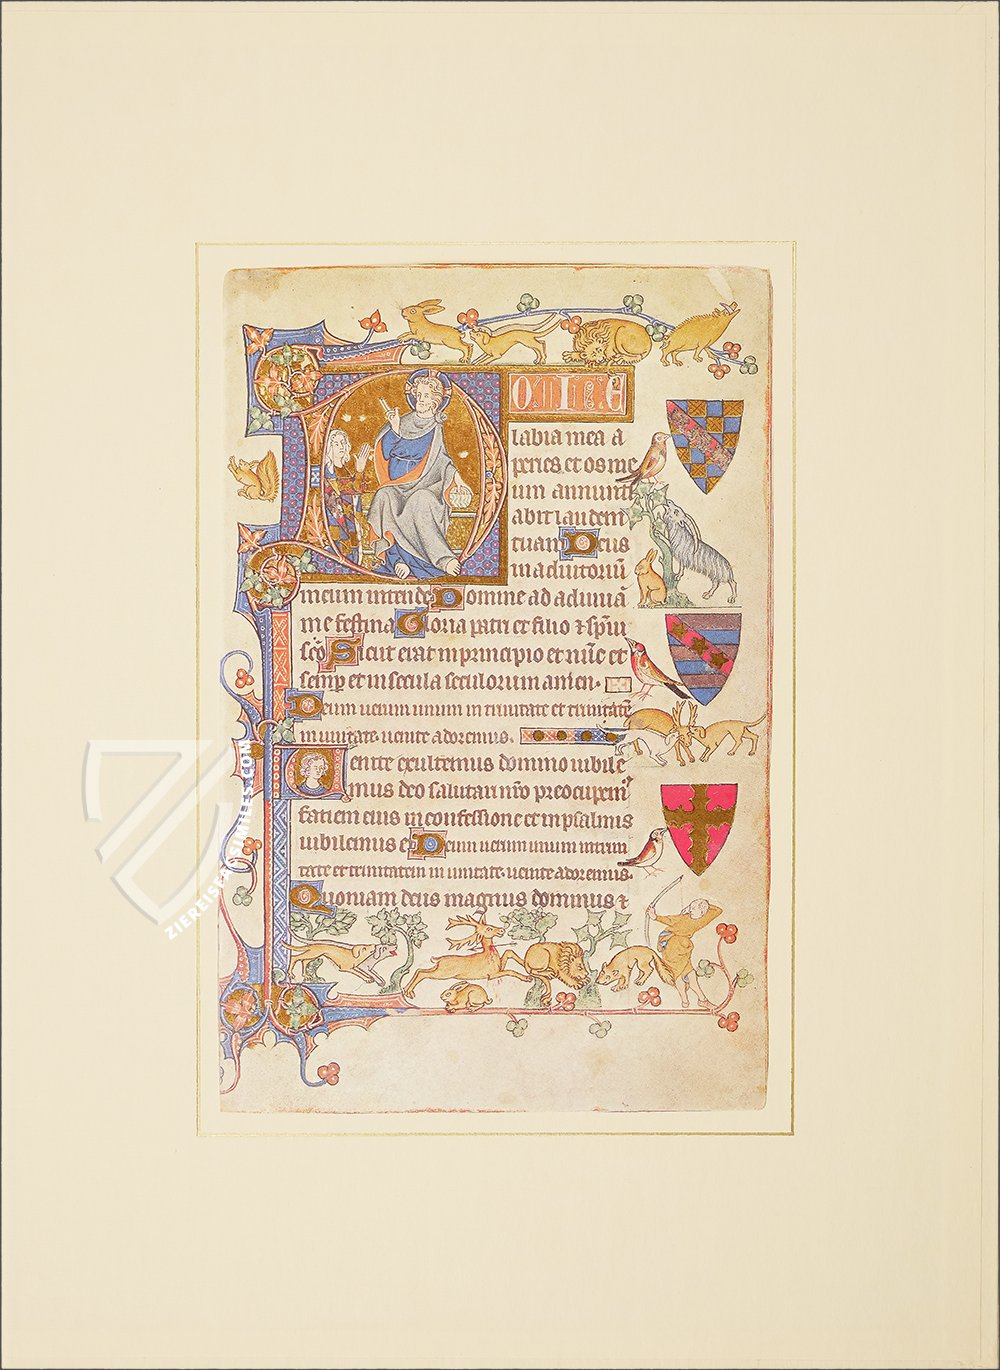 DOMINE
labia mea a
peries et os me
um annunti
abit laudem
tuam Deus
in adiutoriū
meum intende Domine ad adiuuā
me festina Gloria patri et filio ⁊ sp̄ui
sc̄o Sicut erat in principio et nūc et
semp̲ et in secula seculorum amen.
Deum uerum unum in trinitate et trinitatē
in unitate uenite adoremus.
Uenite exultemus domino iubile
mus deo salutari nr̄o preocupem᷒
faciem eius in confessione et in psalmis
iubilemus ei Deum uerum unum in trini
tate et trinitatem in unitate uenite adoremus.
Quoniam deus magnus dominus ⁊
ZIEREIS FACSIMILES.COM